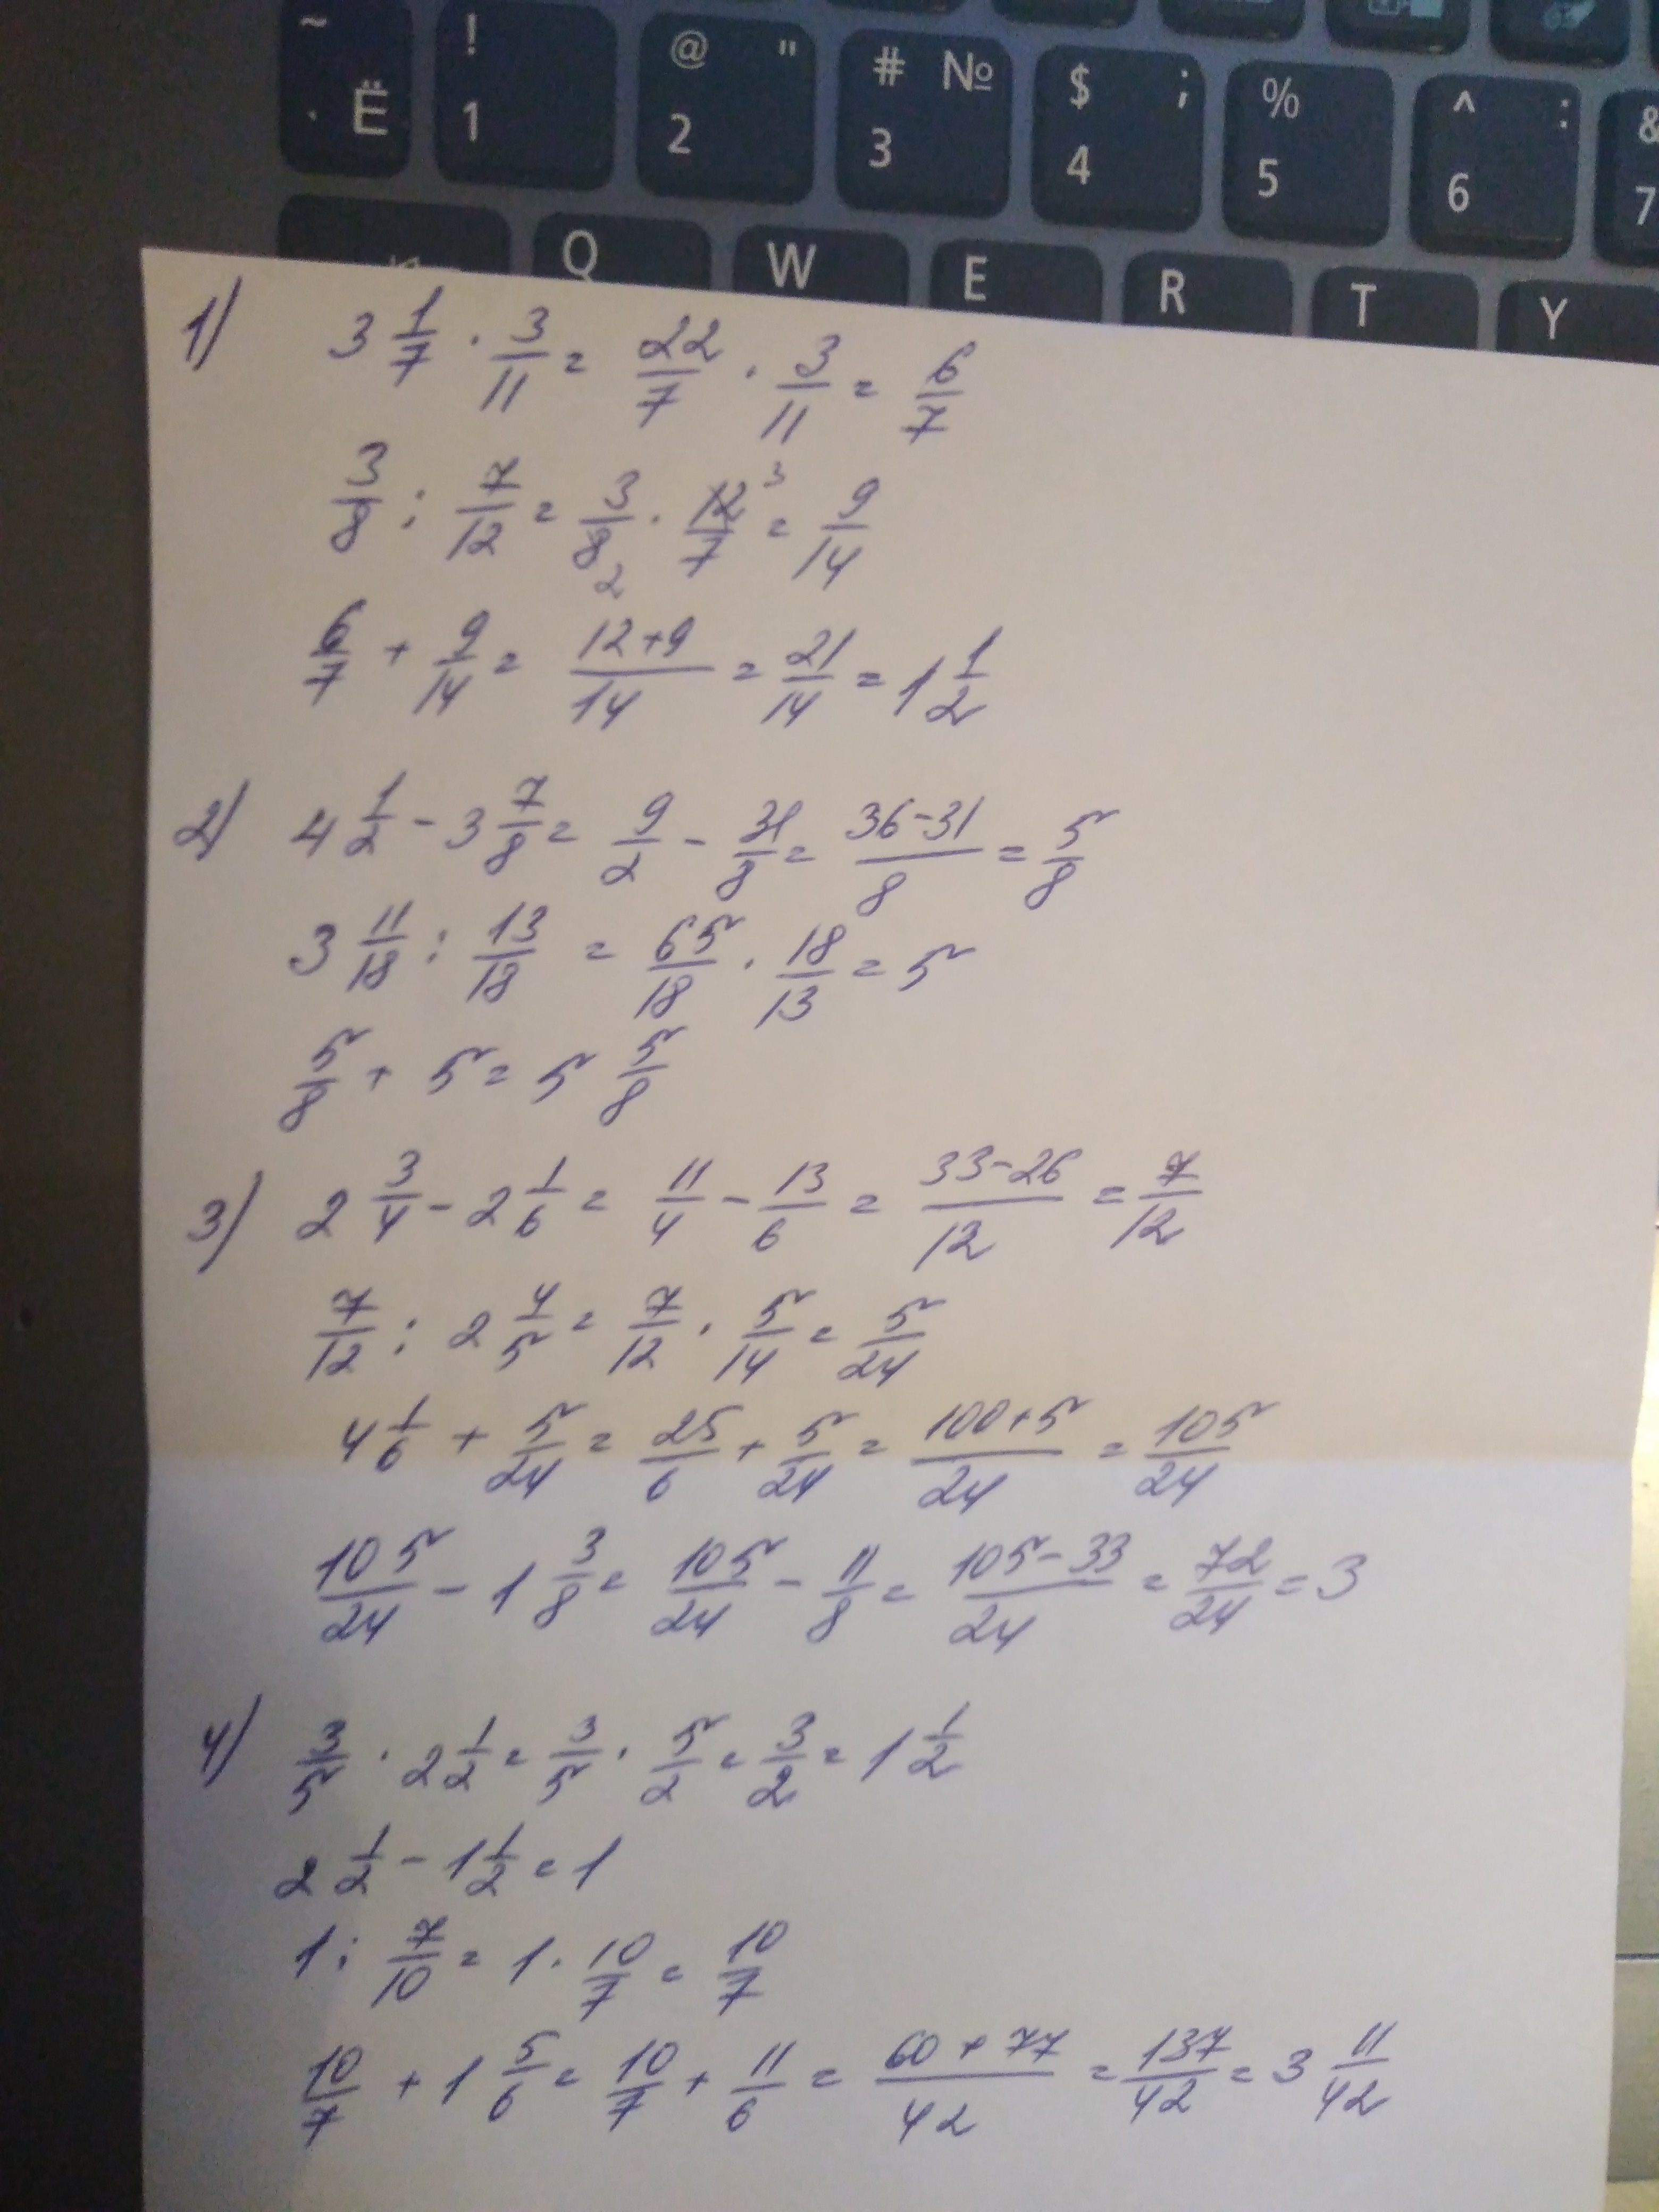 ~ ! @ " # № $ ; % ^ : &
Ё 1 2 3 4 5 6 7
Q W E R T Y
1) 3 1/7 · 3/11 = 22/7 · 3/11 = 6/7
3/8 : 7/12 = 3/8 2 · 12/7 3 = 9/14
6/7 + 9/14 = 12+9/14 = 21/14 = 1 1/2
2) 4 1/2 - 3 7/8 = 9/2 - 31/8 = 36-31/8 = 5/8
3 11/18 : 13/18 = 65/18 · 18/13 = 5
5/8 + 5 = 5 5/8
3) 2 3/4 - 2 1/6 = 11/4 - 13/6 = 33-26/12 = 7/12
7/12 : 2 4/5 = 7/12 · 5/14 = 5/24
4 1/6 + 5/24 = 25/6 + 5/24 = 100+5/24 = 105/24
105/24 - 1 3/8 = 105/24 - 11/8 = 105-33/24 = 72/24 = 3
4) 3/5 · 2 1/2 = 3/5 · 5/2 = 3/2 = 1 1/2
2 1/2 - 1 1/2 = 1
1 : 7/10 = 1 · 10/7 = 10/7
10/7 + 1 5/6 = 10/7 + 11/6 = 60+77/42 = 137/42 = 3 11/42